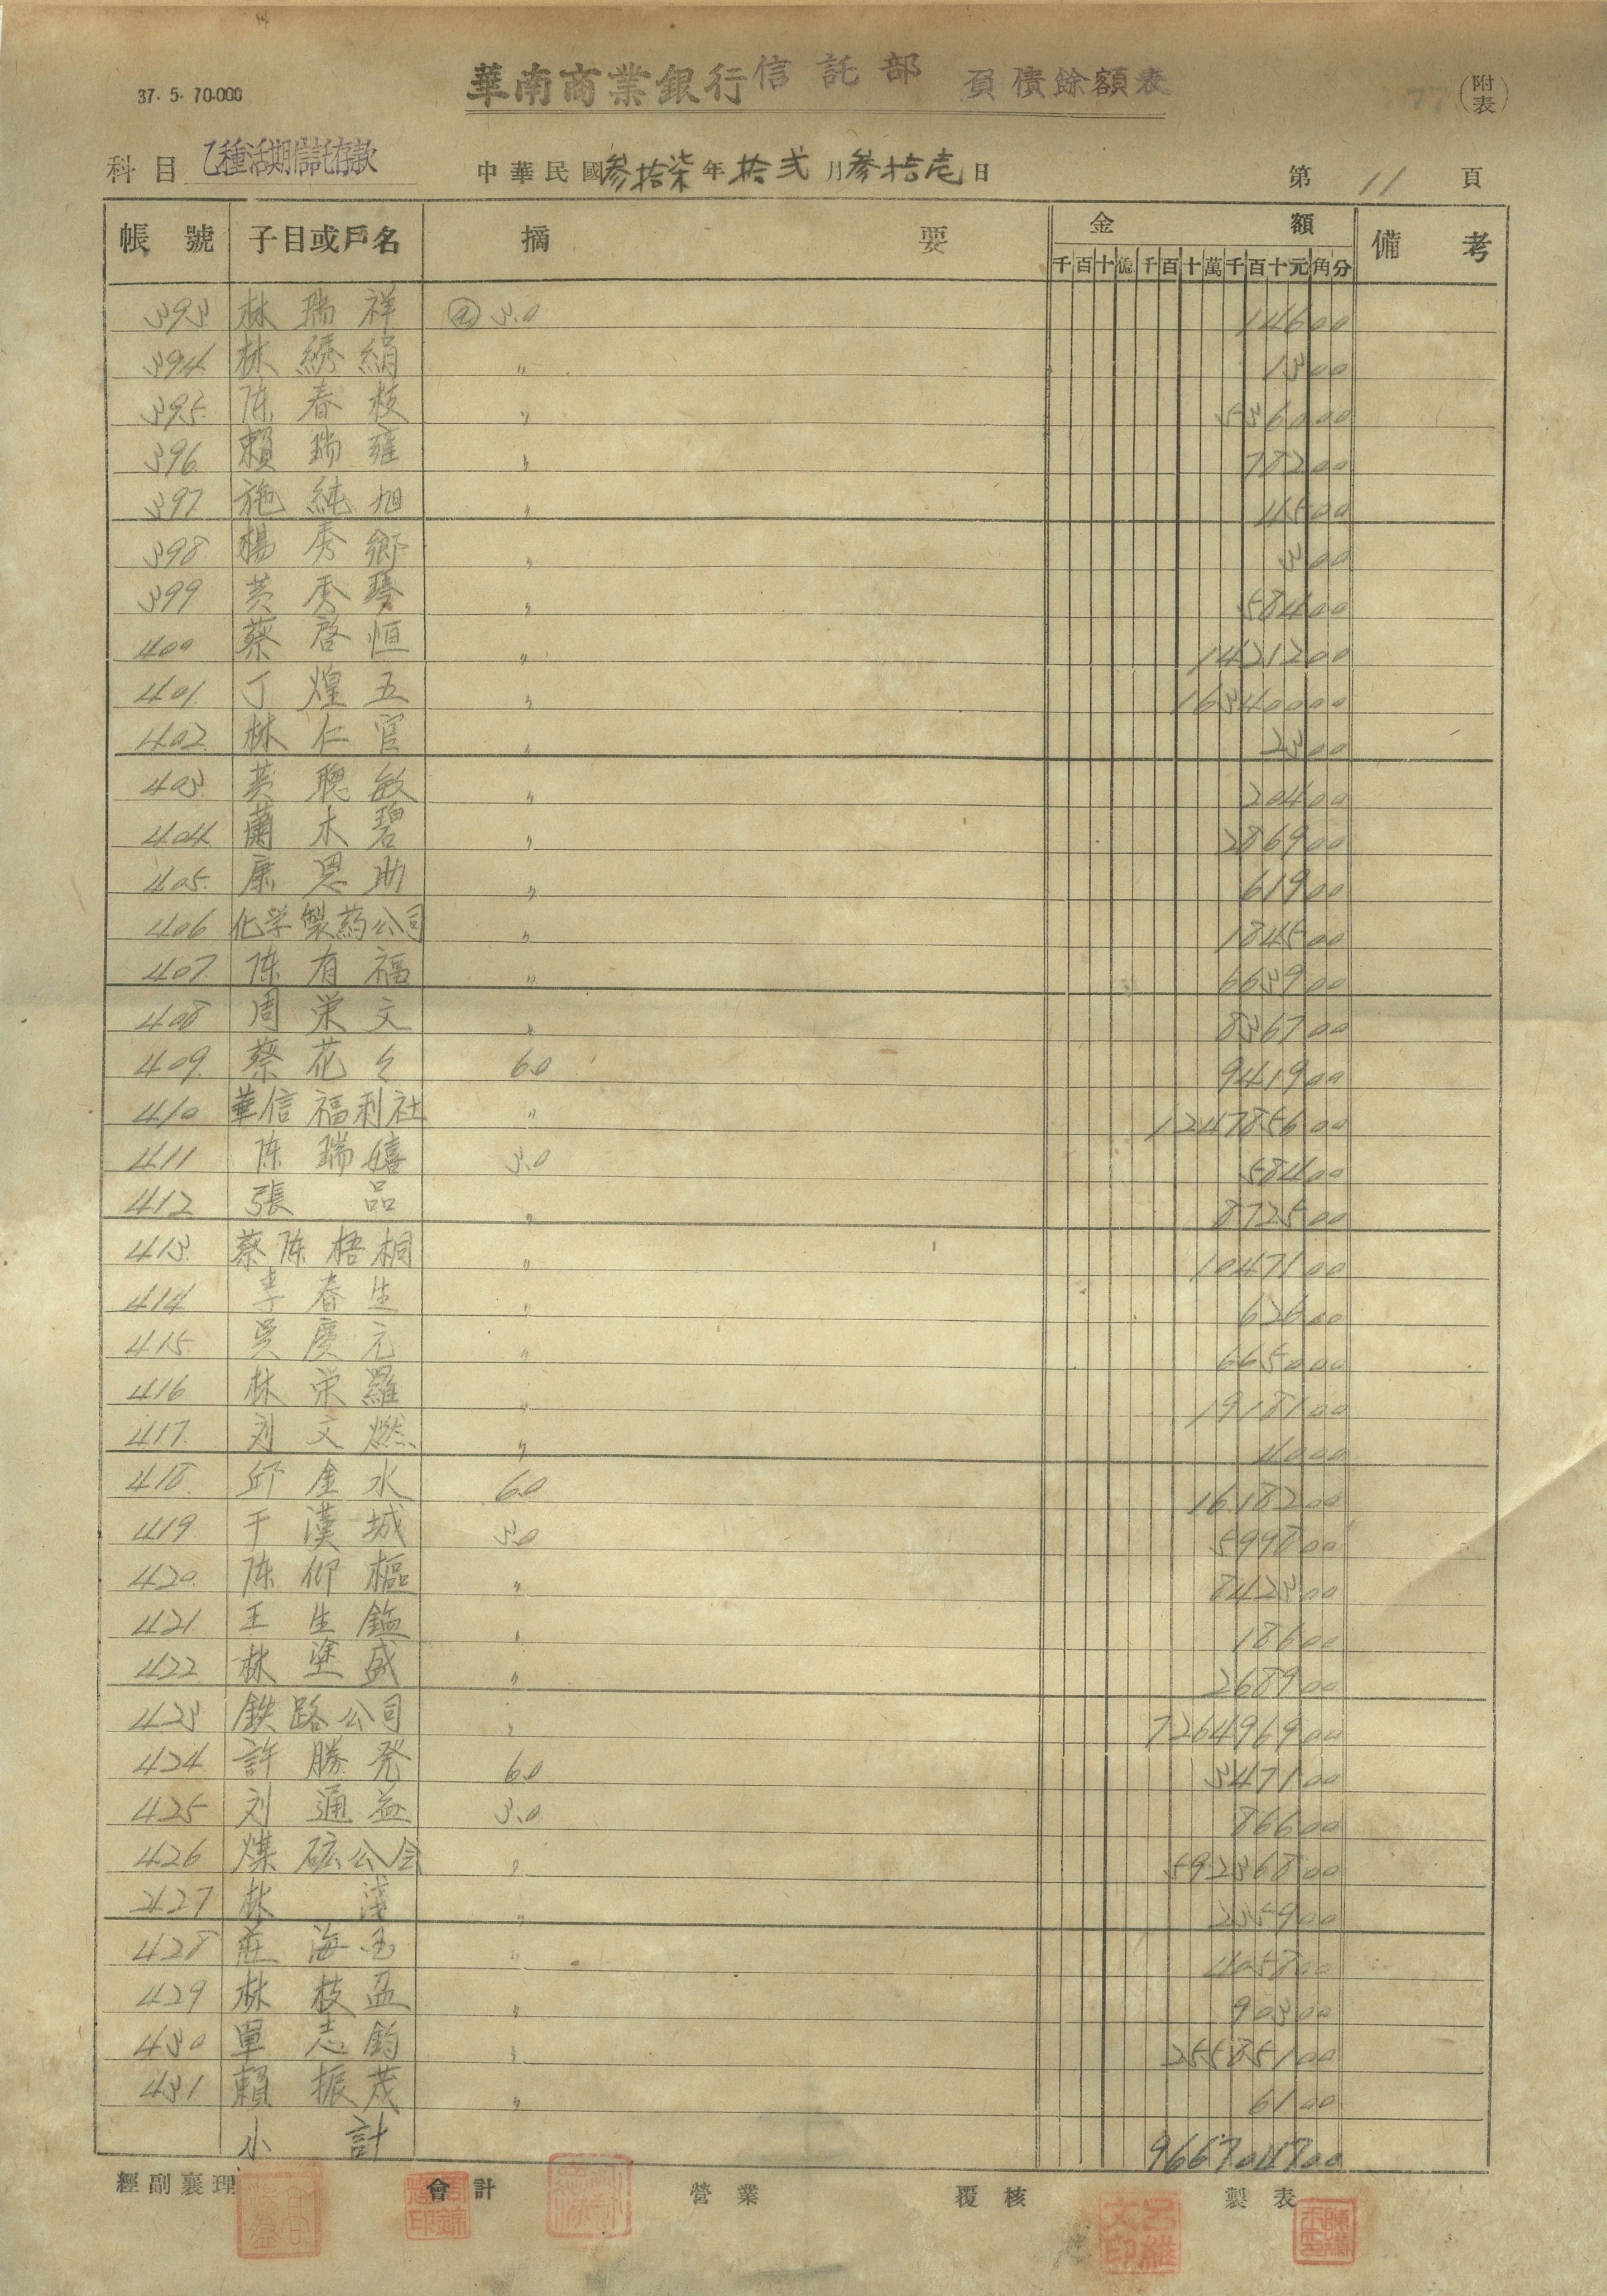 37. 5. 70.000
華南商業銀行信託部 負債餘額表
(附表)
科目 乙種活期信託存款 中華民國叁拾柒年拾弍月叁拾壱日 第11頁
帳號 子目或戶名 摘要 金額 備考
千百十億千百十萬千百十元角分
393 林瑞祥 @ 3.0 146 00
394 林綉絹 〃 13 00
395 陈春枝 〃 5360 00
396 賴瑞雍 〃 782 00
397 施純旭 〃 45 00
398 楊秀鄉 〃 3 00
399 黃秀琴 〃 584 00
400 蔡啓恒 〃 14212 00
401 丁煌五 〃 163400 00
402 林仁官 〃 23 00
403 黃聰敏 〃 204 00
404 蘭木碧 〃 2869 00
405 康恩助 〃 619 00
406 化学製药公司 〃 1845 00
407 陈有福 〃 6639 00
408 周栄文 〃 8367 00
409 蔡花々 6.0 9419 00
410 華信福利社 〃 1247856 00
411 陈瑞嬉 3.0 584 00
412 張品 〃 8725 00
413 蔡陈梧桐 〃 10471 00
414 李春生 〃 626 00
415 吳慶元 〃 6650 00
416 林栄羅 〃 19181 00
417 刘文燃 〃 40 00
418 邱金水 6.0 16182 00
419 干漢城 3.0 5998 00
420 陈仰樞 〃 8423 00
421 王生鎰 〃 186 00
422 林塗盛 〃 2689 00
423 鉄路公司 〃 7264969 00
424 許勝発 6.0 3471 00
425 刘通益 3.0 866 00
426 煤砿公会 〃 592368 00
427 林浅 〃 2359 00
428 莊海玉 〃 4058 00
429 林枝盃 〃 903 00
430 單志鈞 〃 255851 00
431 賴振茂 〃 61 00
小計 9667047 00
經副襄理 會計 營業 覆核 製表